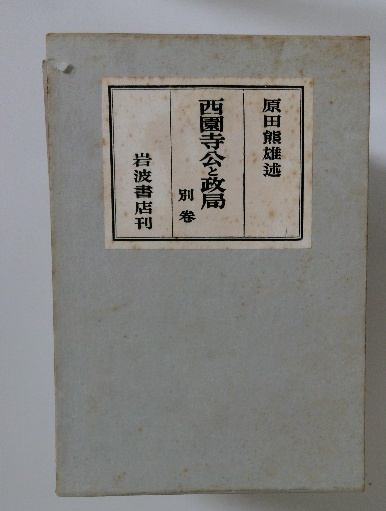 原田熊雄述
西園寺公と政局
別巻
岩波書店刊